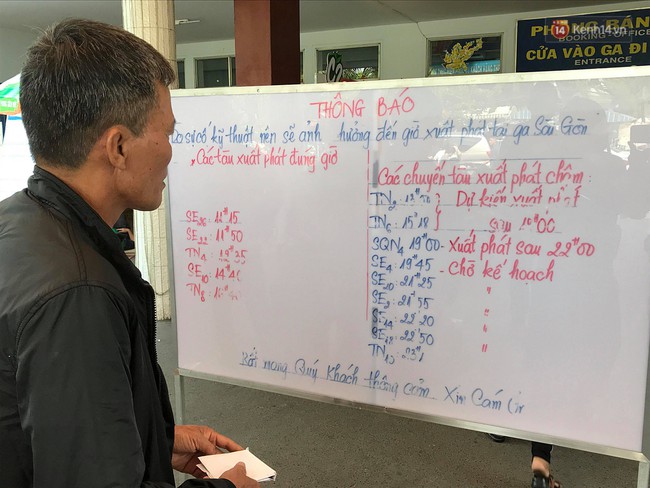 14 Kenh14.vn
PHÒNG BÁN
BOOKING - OFFICE
CỬA VÀO GA ĐI
ENTRANCE
C2
THÔNG BÁO
Do sự cố kỹ thuật nên sẽ ảnh hưởng đến giờ xuất phát tại ga Sài Gòn
Các tàu xuất phát đúng giờ
SE22: 11H50
SE10: 14H
TN8:
Các chuyến tàu xuất phát chậm:
TN2: Dự kiến xuất phát
TN6: 15H18 sau
SQN4 19H00 - Xuất phát sau 22H00
SE4: 19H45 - Chờ kế hoạch
SE20: 21H25 "
SE2: 21H55 "
SE14: 22H20 "
SE12: 22H50 "
TN10:
Rất mong Quý Khách thông cảm. Xin Cám Ơn